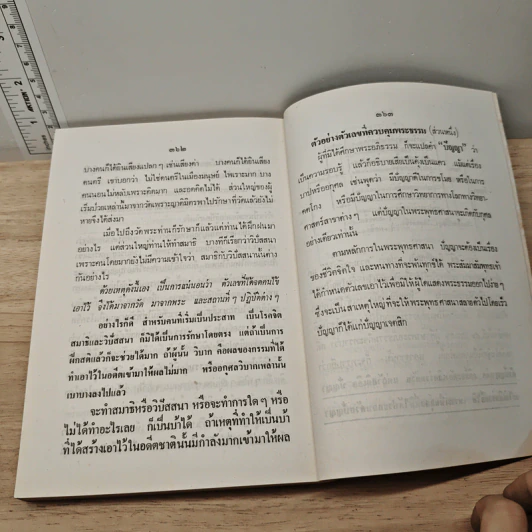 ๓๖๒
บางคนก็ได้ยินเสียงแปลกๆ เช่นเสียงด่า บางคนก็ได้ยินเสียง
ดนตรี เขาบอกว่า ไม่ใช่ดนตรีในเมืองมนุษย์ ไพเราะมาก บาง
คนนอนไม่หลับเพราะคิดมาก และหยุดคิดไม่ได้ ส่วนใหญ่ของผู้
เริ่มป่วยเหล่านี้มาจากวัดเพราะญาติมิตรพาไปรักษาที่วัดแล้วยังไม่
หายจึงได้ส่งมา
เมื่อไปถึงวัดพระท่านก็รักษาก็แล้วแต่ท่านได้ฝึกฝนมา
อย่างไร แต่ส่วนใหญ่ท่านให้ทำสมาธิ บางทีก็เรียกว่าวิปัสสนา
เพราะคนโดยมากยังไม่มีความเข้าใจว่า สมาธิกับวิปัสสนานั้นต่าง
กันอย่างไร
ด้วยเหตุดังนี้เอง เป็นการแน่นอนว่า ตัวเลขที่ได้จดคนไข้
เอาไว้ จึงได้มาจากวัด มาจากพระ และสถานที่ๆ ปฏิบัติต่างๆ
อย่างไรก็ดี สำหรับคนที่เริ่มเป็นประสาท เป็นโรคจิต
สมาธิและวิปัสสนา ก็มิได้เป็นการรักษาโดยตรง แต่ถ้าเป็นการ
ฝึกสติแล้วก็จะช่วยได้มาก ถ้าผู้นั้น วิบาก คือผลของกรรมที่ได้
ทำเอาไว้ในอดีตเข้ามาให้ผลไม่มาก หรืออกุศลวิบากเหล่านั้น
เบาบางลงไปแล้ว
จะทำสมาธิหรือวิปัสสนา หรือจะทำการใดๆ หรือ
ไม่ได้ทำอะไรเลย ก็เป็นบ้าได้ ถ้าเหตุที่ทำให้เป็นบ้า
ที่ได้สร้างเอาไว้ในอดีตชาตินั้นมีกำลังมากเข้ามาให้ผล
๓๖๓
ตัวอย่างตัวเลขที่ควบคุมพระธรรม (ส่วนหนึ่ง)
ผู้ที่มิได้ศึกษาพระอภิธรรม ก็จะแปลคำ "ปัญญา" ว่า
เป็นความรอบรู้ แล้วก็อธิบายเสียเป็นคุ้งเป็นแคว แม้แต่เรื่อง
บาปหรืออกุศล เช่นพูดว่า มีปัญญาในการขโมย หรือในการ
คดโกง หรือมีปัญญาในการศึกษาวิทยาการทางโลกทางวิทยา-
ศาสตร์สาขาต่างๆ แต่ปัญญาในพระพุทธศาสนาจะเกิดกับกุศล
อย่างเดียวเท่านั้น
ตามหลักการในพระพุทธศาสนา ปัญญาจะต้องเป็นเรื่อง
ของชีวิตจิตใจ และหนทางที่จะพ้นทุกข์ได้ พระสัมมาสัมพุทธเจ้า
ได้กำหนดตัวเลขเอาไว้เพื่อมิให้ผู้ใดแสดงพระธรรมออกไปง่ายๆ
ซึ่งจะเป็นสาเหตุที่จะให้พระพุทธศาสนาสลายตัวไปโดยเร็ว
ปัญญาก็ได้แก่ปัญญาเจตสิก